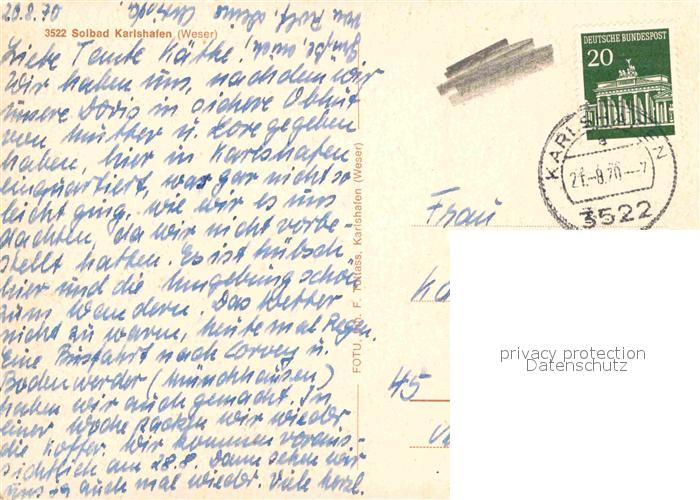 20.8.70
3522 Solbad Karlshafen (Weser)
Liebe Tante Käthe!
Wir haben uns, nachdem wir
unsere Doris in sichere Obhut
von Mutter u. Lore gegeben
haben, hier in Karlshafen
einquartiert, was gar nicht so
leicht ging, wie wir es uns
dachten, da wir nicht vorbe-
stellt hatten. Es ist hübsch
hier und die Umgebung schön
zum Wandern. Das Wetter
nicht zu warm, heute mal Regen.
Eine Busfahrt nach Corvey u.
Bodenwerder (Münchhausen)
haben wir auch gemacht. In
einer Woche packen wir wieder
die Koffer. Wir kommen voraus-
sichtlich am 28.8. Dann sehen wir
uns ja auch mal wieder. Viele herzl.
FOTU, F. Karlshafen (Weser)
DEUTSCHE BUNDESPOST
20
21.-8.70.--7
3522
Frau
45
privacy protection
Datenschutz